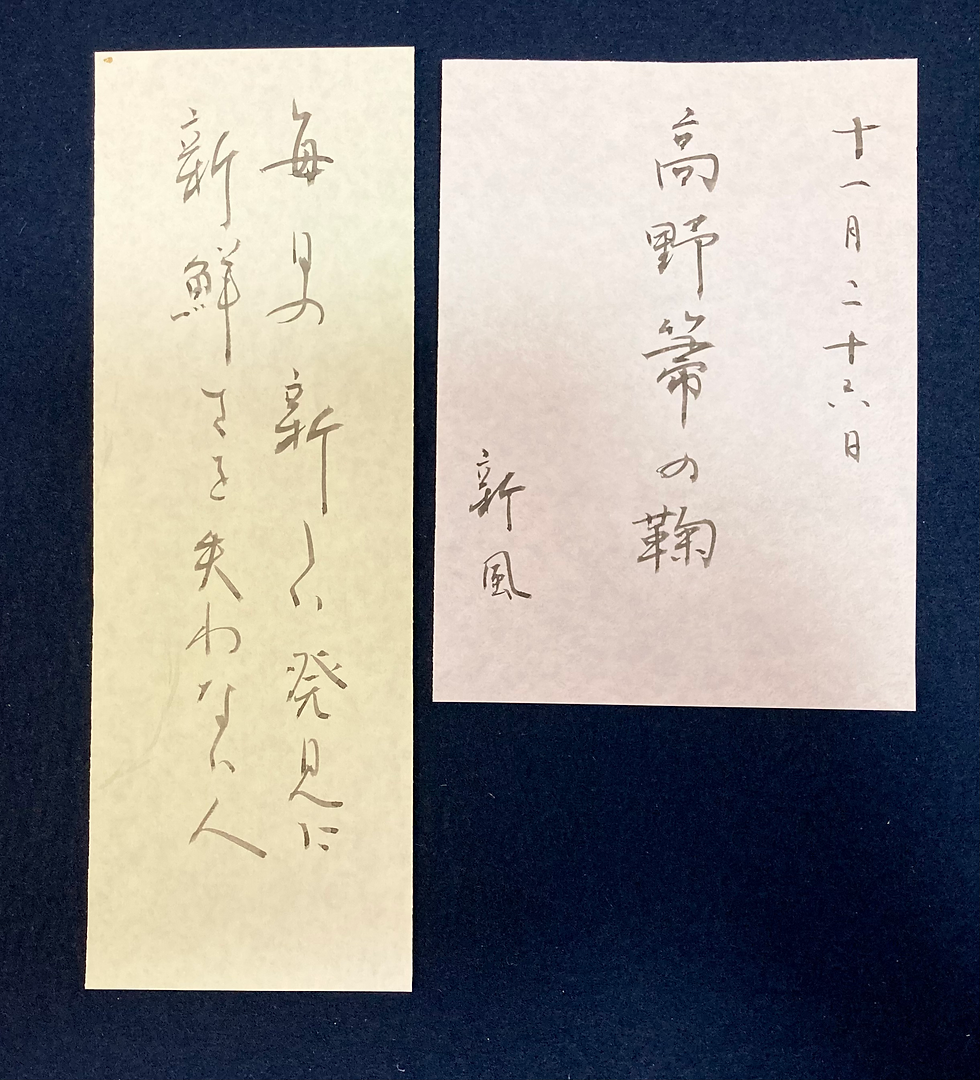 十一月二十六日
高野箒の鞠
新風
毎日の新しい発見に
新鮮さを失わない人